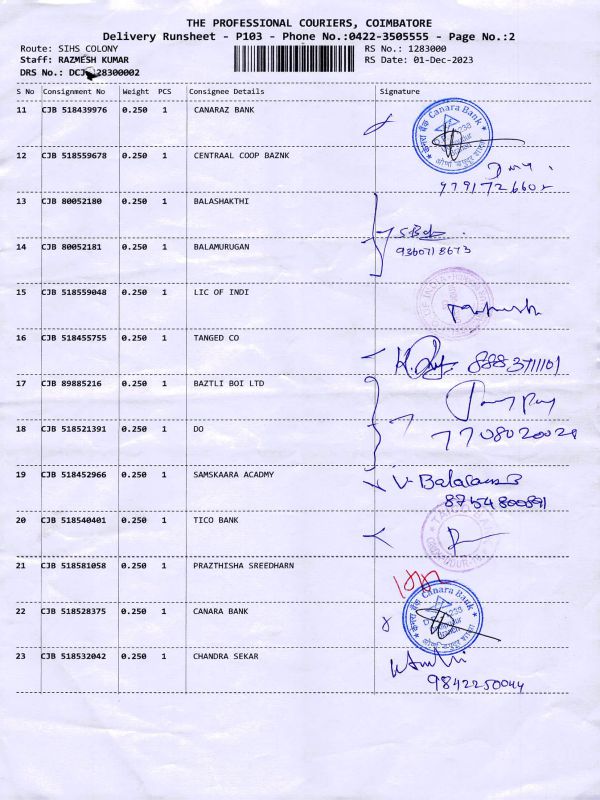 THE PROFESSIONAL COURIERS, COIMBATORE
Delivery Runsheet - P103 - Phone No.:0422-3505555 - Page No.:2
Route: SIHS COLONY RS No.: 1283000
Staff: RAZMESH KUMAR RS Date: 01-Dec-2023
DRS No.: DCJ 28300002
S No Consignment No Weight PCS Consignee Details Signature
11 CJB 518439976 0.250 1 CANARAZ BANK
Canara Bank
12 CJB 518559678 0.250 1 CENTRAAL COOP BAZNK
13 CJB 80052180 0.250 1 BALASHAKTHI
14 CJB 80052181 0.250 1 BALAMURUGAN
9360718673
15 CJB 518559048 0.250 1 LIC OF INDI
16 CJB 518455755 0.250 1 TANGED CO
8883711101
17 CJB 89885216 0.250 1 BAZTLI BOI LTD
18 CJB 518521391 0.250 1 DO
19 CJB 518452966 0.250 1 SAMSKAARA ACADMY
8754800891
20 CJB 518540401 0.250 1 TICO BANK
21 CJB 518581058 0.250 1 PRAZTHISHA SREEDHARN
22 CJB 518528375 0.250 1 CANARA BANK
Canara Bank
23 CJB 518532042 0.250 1 CHANDRA SEKAR
9842250044